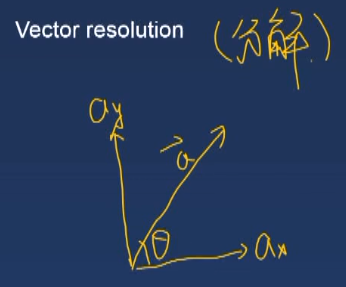 Vector resolution (分解)
ay
a
θ
ax